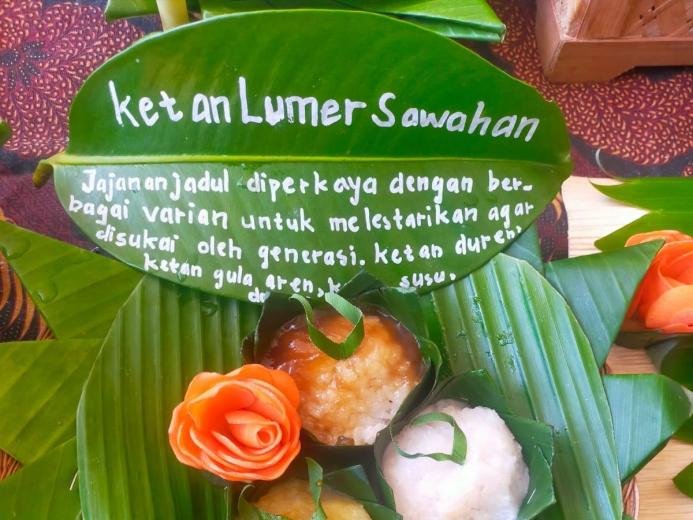 Ketan Lumer Sawahan
Jajanan jadul diperkaya dengan ber-
bagai varian untuk melestarikan agar
disukai oleh generasi. ketan duren,
ketan gula aren, susu,